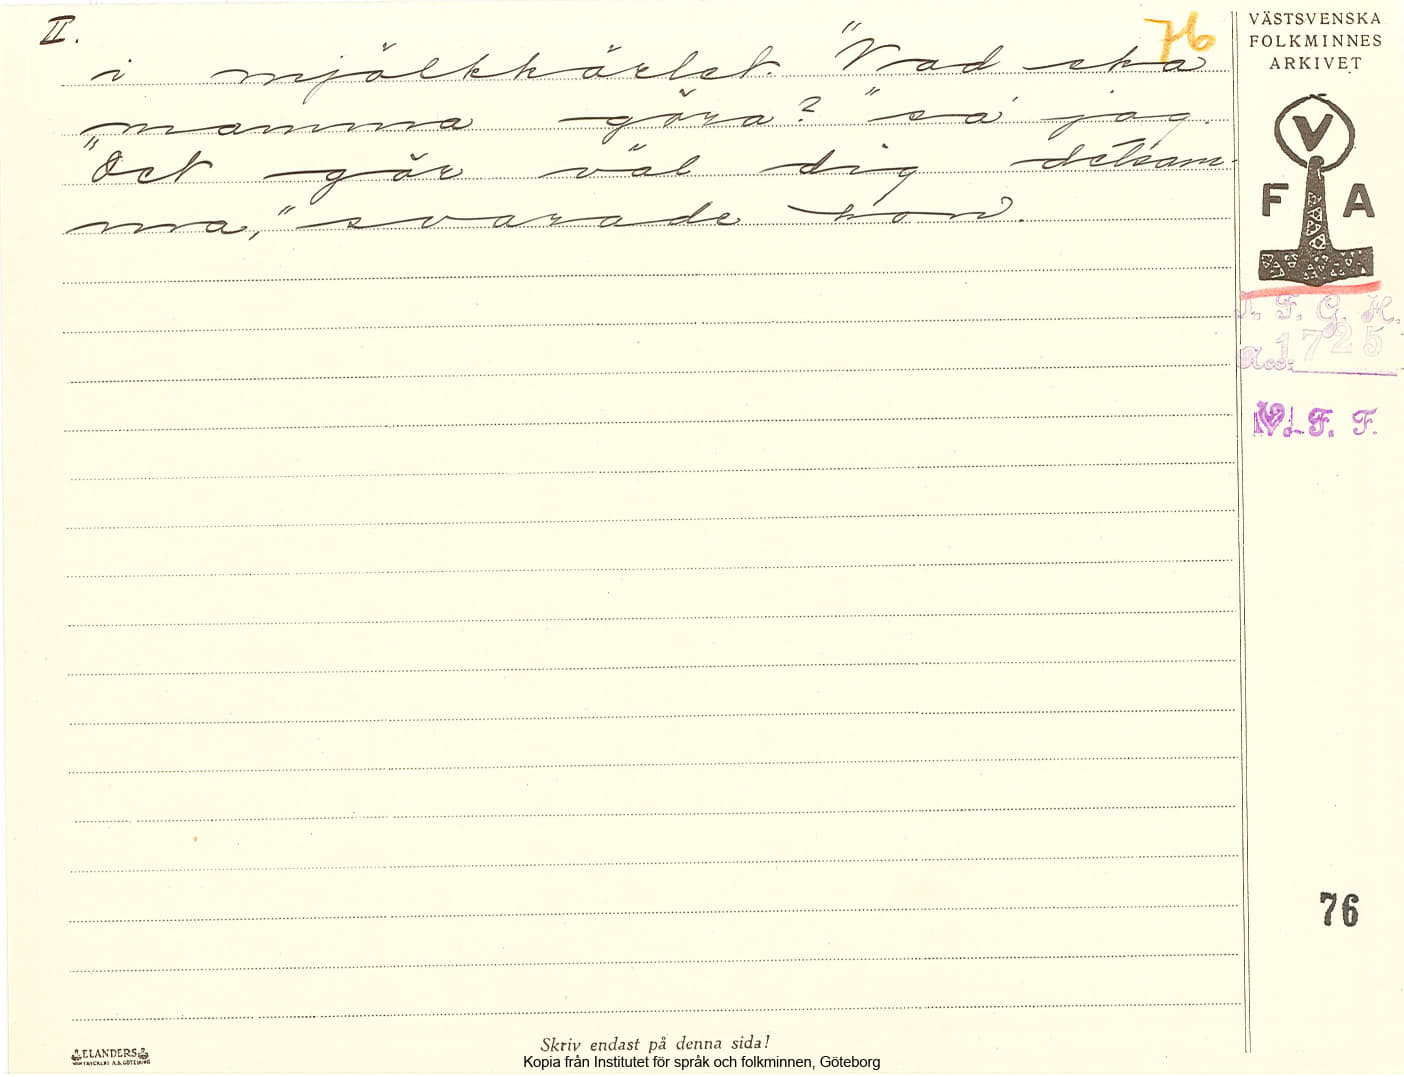 II.
76
i mjölkkärlet. "Vad ska
mamma göra?" sa' jag.
"Det gör väl dig detsam-
ma," svarade hon.
VÄSTSVENSKA
FOLKMINNES
ARKIVET
V
F A
I. F. G. H.
Acc: 1725
V. F. F.
76
ELANDERS
Skriv endast på denna sida!
Kopia från Institutet för språk och folkminnen, Göteborg